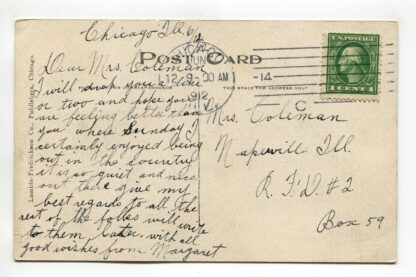 Chicago Ill 6/12
POST CARD
Dear Mrs. Coleman
I will drop you a line
or two and hope you
are feeling better than
you where Sunday I
certainly enjoyed being
out in the country
it is so quiet and nice
out there give my
best regards to all the
rest of the folks will write
to them later. with all
good wishes from Margaret
CHICAGO
JUN
12 9 00 AM
1912
-14-
U.S. POSTAGE
1 CENT 1
THIS SPACE FOR ADDRESS ONLY
Mrs. Coleman
Naperville Ill.
R.F.D. #2
Box 59
C
Publishers, Chicago.